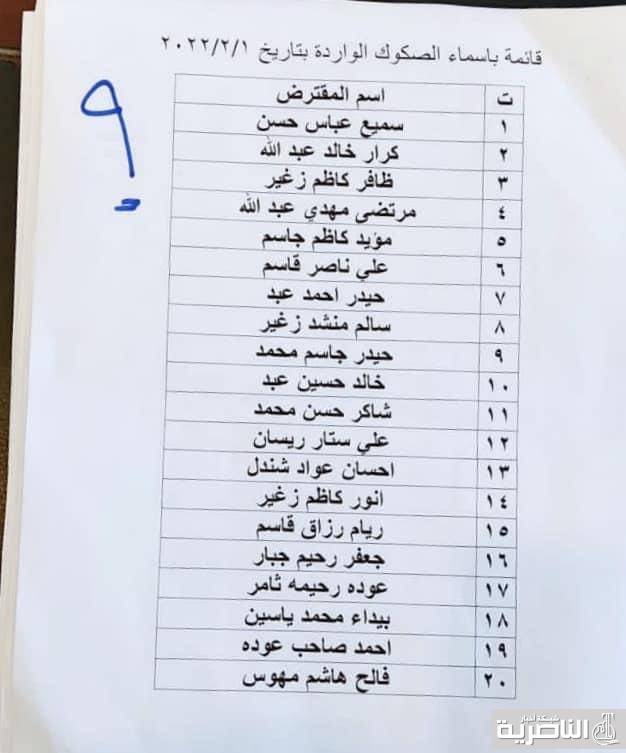 قائمة باسماء الصكوك الواردة بتاريخ ٢٠٢٢/٢/١
ت اسم المقترض
١ سميع عباس حسن
٢ كرار خالد عبد الله
٣ ظافر كاظم زغير
٤ مرتضى مهدي عبد الله
٥ مؤيد كاظم جاسم
٦ علي ناصر قاسم
٧ حيدر احمد عبد
٨ سالم منشد زغير
٩ حيدر جاسم محمد
١٠ خالد حسين عبد
١١ شاكر حسن محمد
١٢ علي ستار ريسان
١٣ احسان عواد شندل
١٤ انور كاظم زغير
١٥ ريام رزاق قاسم
١٦ جعفر رحيم جبار
١٧ عوده رحيمه ثامر
١٨ بيداء محمد ياسين
١٩ احمد صاحب عوده
٢٠ فالح هاشم مهوس
٩
شبكة أخبار
الناصرية